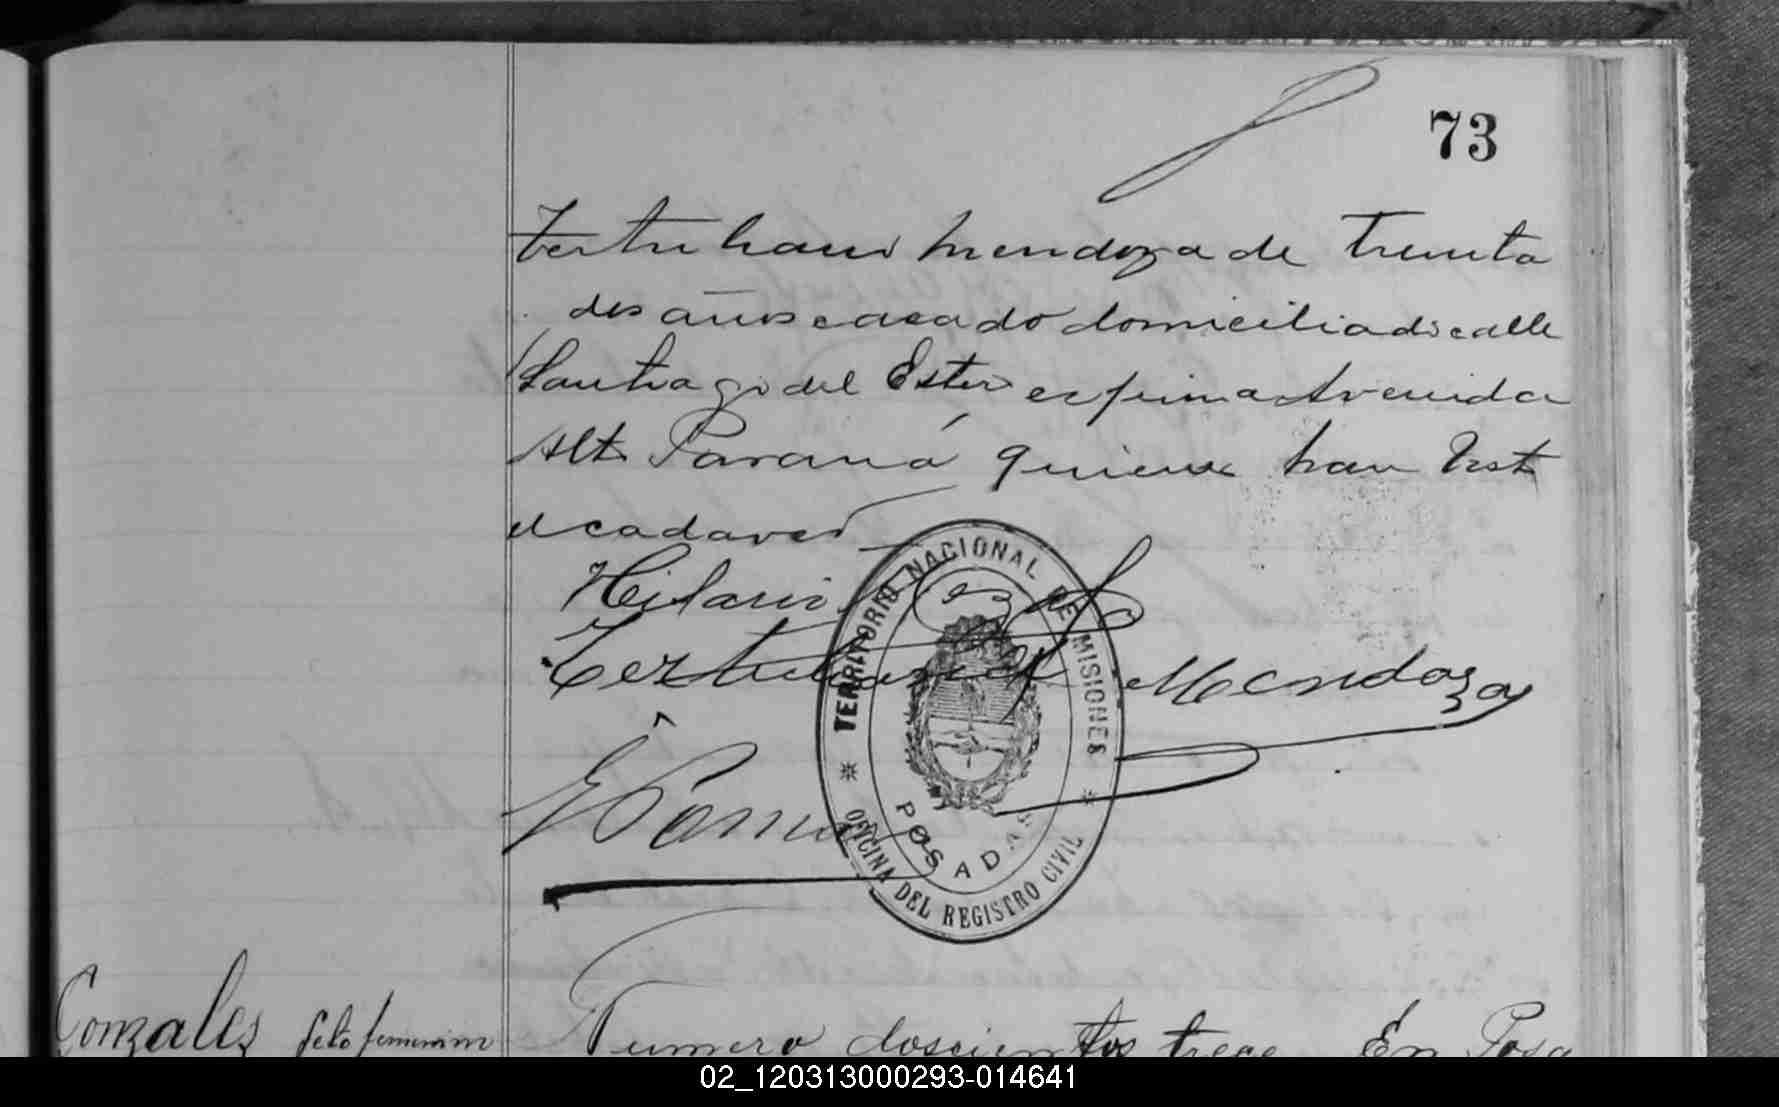 73
Tertuliano Mendoza de treinta
dos años casado domiciliado calle
Santiago del Estero esquina Avenida
Alto Paraná quienes han visto
el cadaver
Hilario
Tertuliano Mendoza
TERRITORIO NACIONAL DE MISIONES
POSADAS
OFICINA DEL REGISTRO CIVIL
Gonzales feto femenino
Numero doscientos trece En Posa
02_120313000293-014641